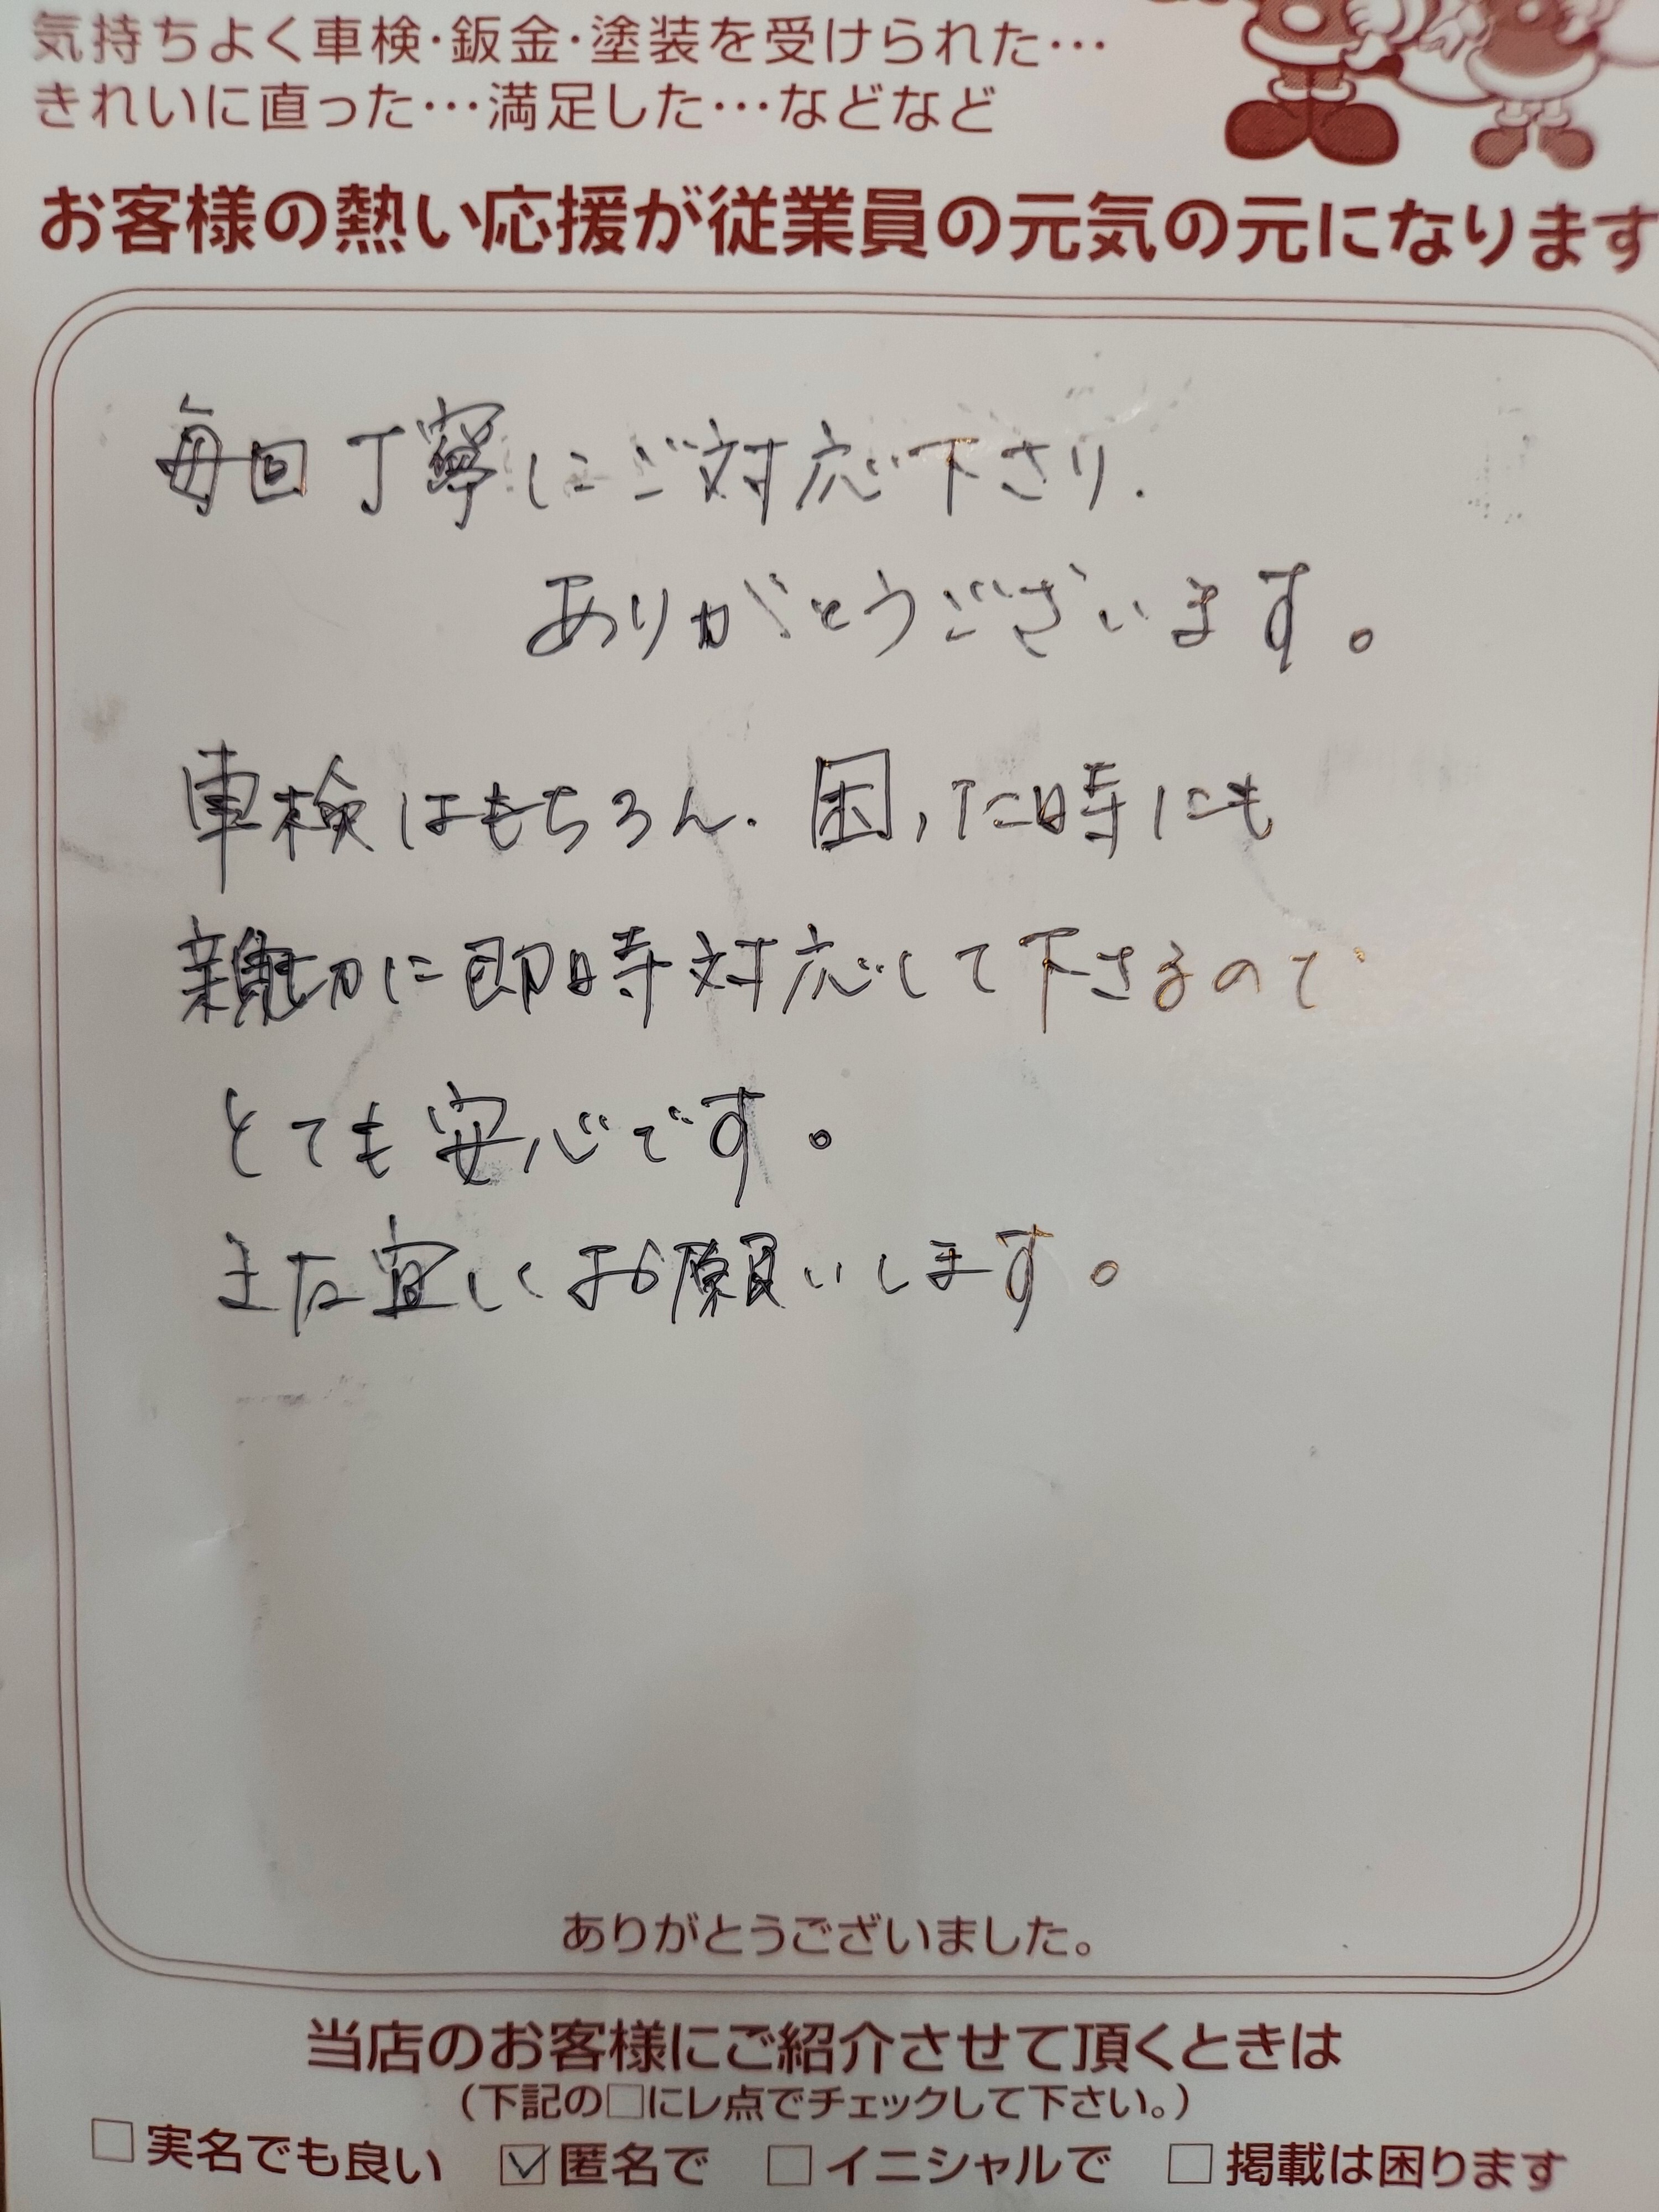 気持ちよく車検・鈑金・塗装を受けられた…
きれいに直った…満足した…などなど
お客様の熱い応援が従業員の元気の元になります
毎回丁寧にご対応下さり、
ありがとうございます。
車検はもちろん、困った時にも
親切に即時対応して下さるので
とても安心です。
また宜しくお願いします。
ありがとうございました。
当店のお客様にご紹介させて頂くときは
(下記の□にレ点でチェックして下さい。)
□実名でも良い ☑匿名で □イニシャルで □掲載は困ります